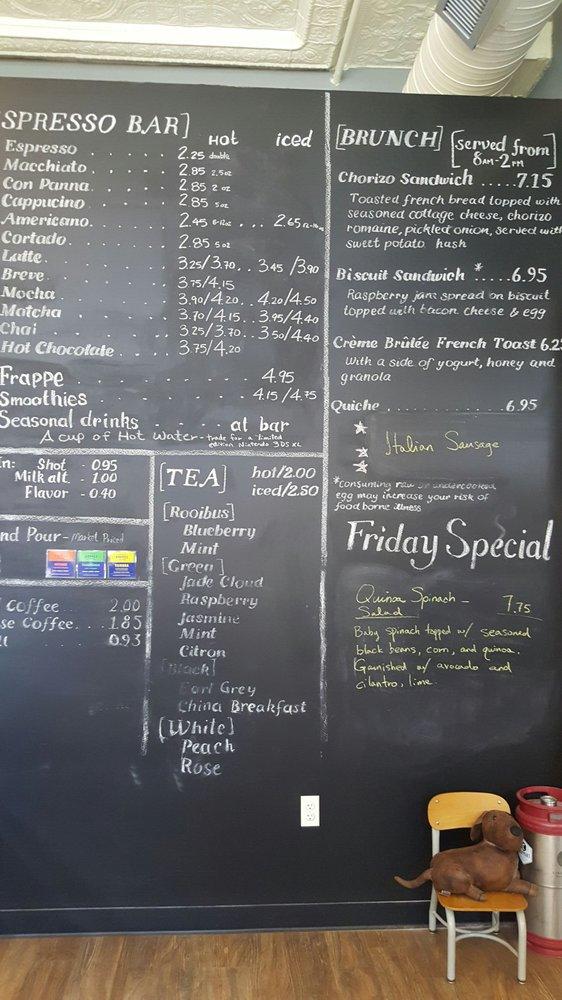 SPRESSO BAR]
Hot iced
Espresso . . . . . 2.25 double
Macchiato . . . . . 2.85 2.5oz
Con Panna . . . . . 2.85 2 oz
Cappucino . . . . . 2.85 5oz
Americano . . . . . 2.45 8-12oz . . . 2.65
Cortado . . . . . 2.85 5oz
Latte . . . . . 3.25/3.70 . . 3.45 /3.90
Breve . . . . . 3.75/4.15
Mocha . . . . . 3.90/4.20 . . 4.20/4.50
Matcha . . . . . 3.70/4.15 . . 3.95/4.40
Chai . . . . . 3.25/3.70 . . 3.50/4.40
Hot Chocolate . . . . . 3.75/4.20
Frappe . . . . . 4.95
Smoothies . . . . . 4.15 /4.75
Seasonal drinks at bar
A cup of Hot Water - trade for a limited
edition Nintendo 3DS XL
n: Shot . 0.95
Milk alt. - 1.00
Flavor - 0.40
nd Pour - Market Priced
Coffee . . . 2.00
se Coffee . . . 1.85
0.93
[TEA] hot/2.00
iced/2.50
[Rooibus]
Blueberry
Mint
[Green]
Jade Cloud
Raspberry
Jasmine
Mint
Citron
[Black]
Earl Grey
China Breakfast
[White]
Peach
Rose
[BRUNCH] [served from
8AM-2PM]
Chorizo Sandwich . . . . . 7.15
Toasted french bread topped with
seasoned cottage cheese, chorizo
romaine, pickled onion, served with
sweet potato hash
Biscuit Sandwich * . . . . . 6.95
Raspberry jam spread on biscuit
topped with bacon cheese & egg
Crème Brûlée French Toast 6.2
with a side of yogurt, honey and
granola
Quiche . . . . . 6.95
Italian Sausage
*consuming raw or undercooked
egg may increase your risk of
food borne illness
Friday Special
Quinoa Spinach - 7.75
Salad
Baby spinach topped w/ seasoned
black beans, corn, and quinoa.
Garnished w/ avocado and
cilantro, lime.